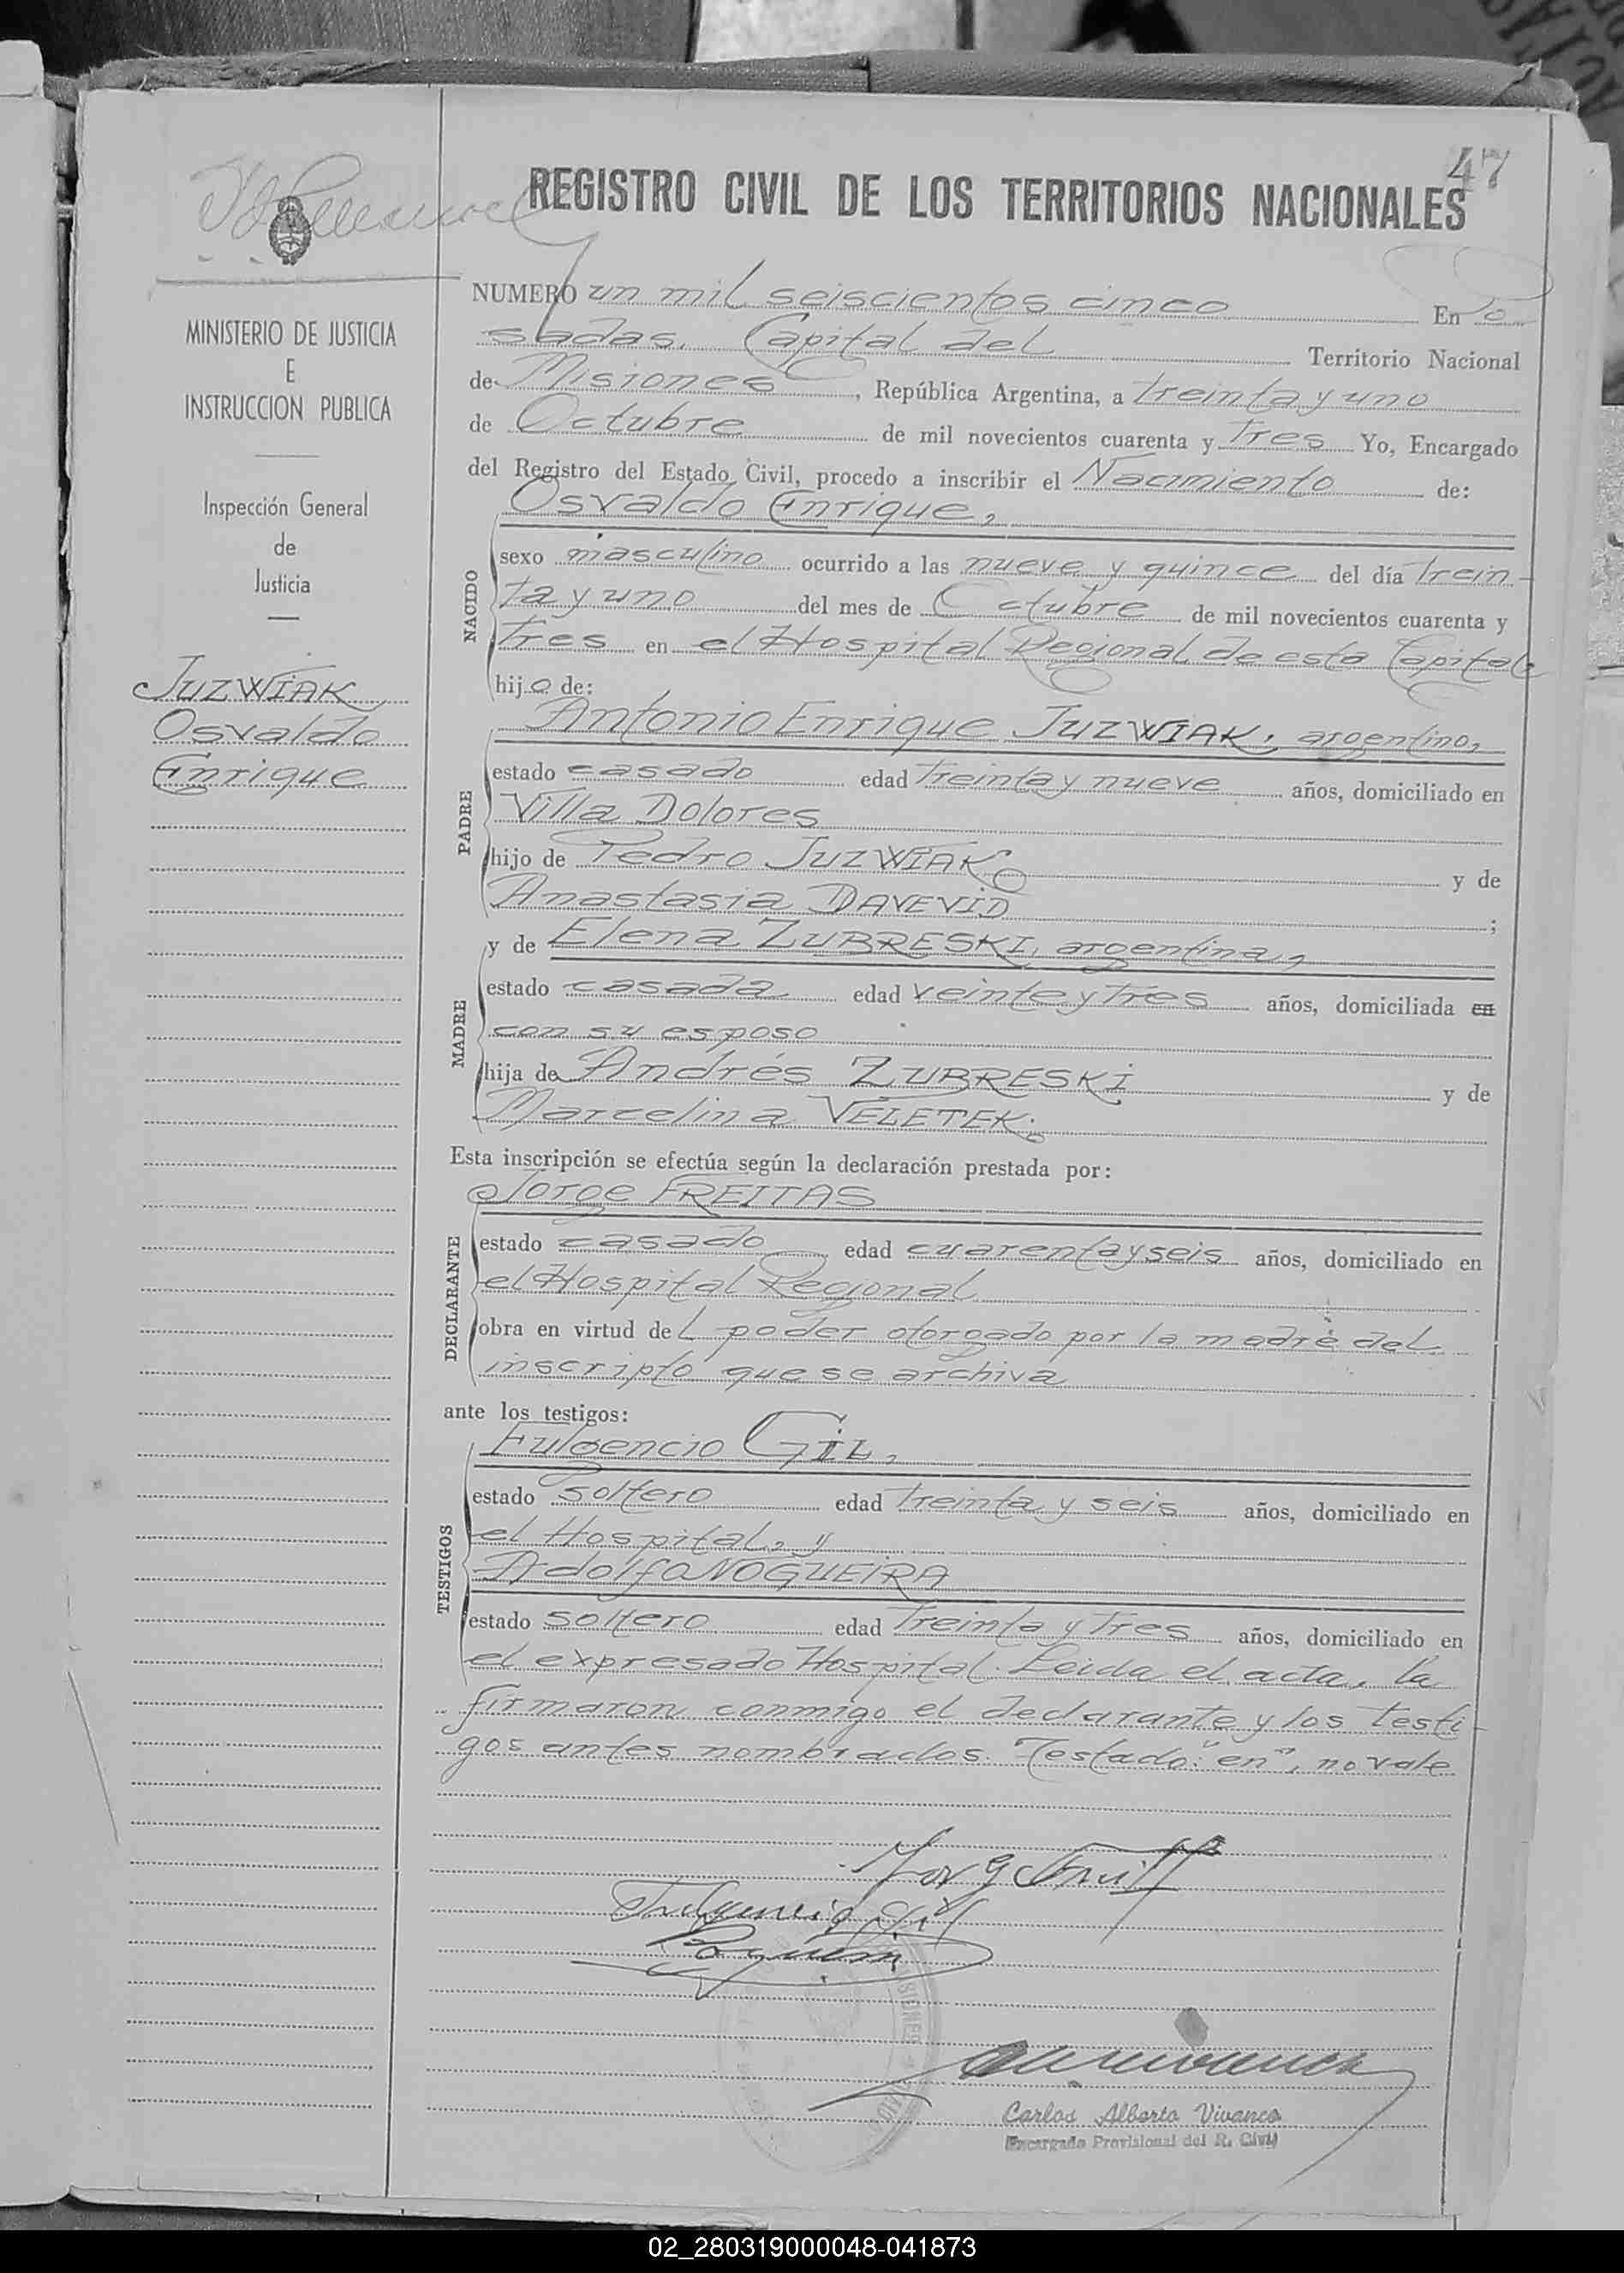 47
REGISTRO CIVIL DE LOS TERRITORIOS NACIONALES
MINISTERIO DE JUSTICIA
E
INSTRUCCION PUBLICA
Inspección General
de
Justicia
JUZWIAK
Osvaldo
Enrique
NUMERO un mil seiscientos cinco En Po
sadas. Capital del Territorio Nacional
de Misiones, República Argentina, a treinta y uno
de Octubre de mil novecientos cuarenta y Tres Yo, Encargado
del Registro del Estado Civil, procedo a inscribir el Nacimiento de:
Osvaldo Enrique,
NACIDO
sexo masculino ocurrido a las nueve y quince del día trein-
ta y uno del mes de Octubre de mil novecientos cuarenta y
Tres en el Hospital Regional de esta Capital
hijo de:
Antonio Enrique JUZWIAK, argentino,
PADRE
estado casado edad treinta y nueve años, domiciliado en
Villa Dolores
hijo de Pedro JUZWIAK y de
Anastasia DAVEVID ;
y de Elena ZUBRESKI, argentina,
MADRE
estado casada edad veinte y Tres años, domiciliada en
con su esposo
hija de Andrés ZUBRESKI y de
Marcelina VELETEK.
Esta inscripción se efectúa según la declaración prestada por:
Jorge FREITAS
DECLARANTE
estado casado edad cuarenta y seis años, domiciliado en
el Hospital Regional
obra en virtud del poder otorgado por la madre del
inscripto que se archiva
ante los testigos:
Fulgencio GIL,
TESTIGOS
estado soltero edad treinta y seis años, domiciliado en
el Hospital, y
Adolfo NOGUEIRA
estado soltero edad treinta y Tres años, domiciliado en
el expresado Hospital. Leida el acta, la
firmaron conmigo el declarante y los testi-
gos antes nombrados. Testado: "en", no vale
Fulgencio Gil
MISIONES
Carlos Alberto Vivanco
Encargado Provisional del R. Civil
02_280319000048-041873